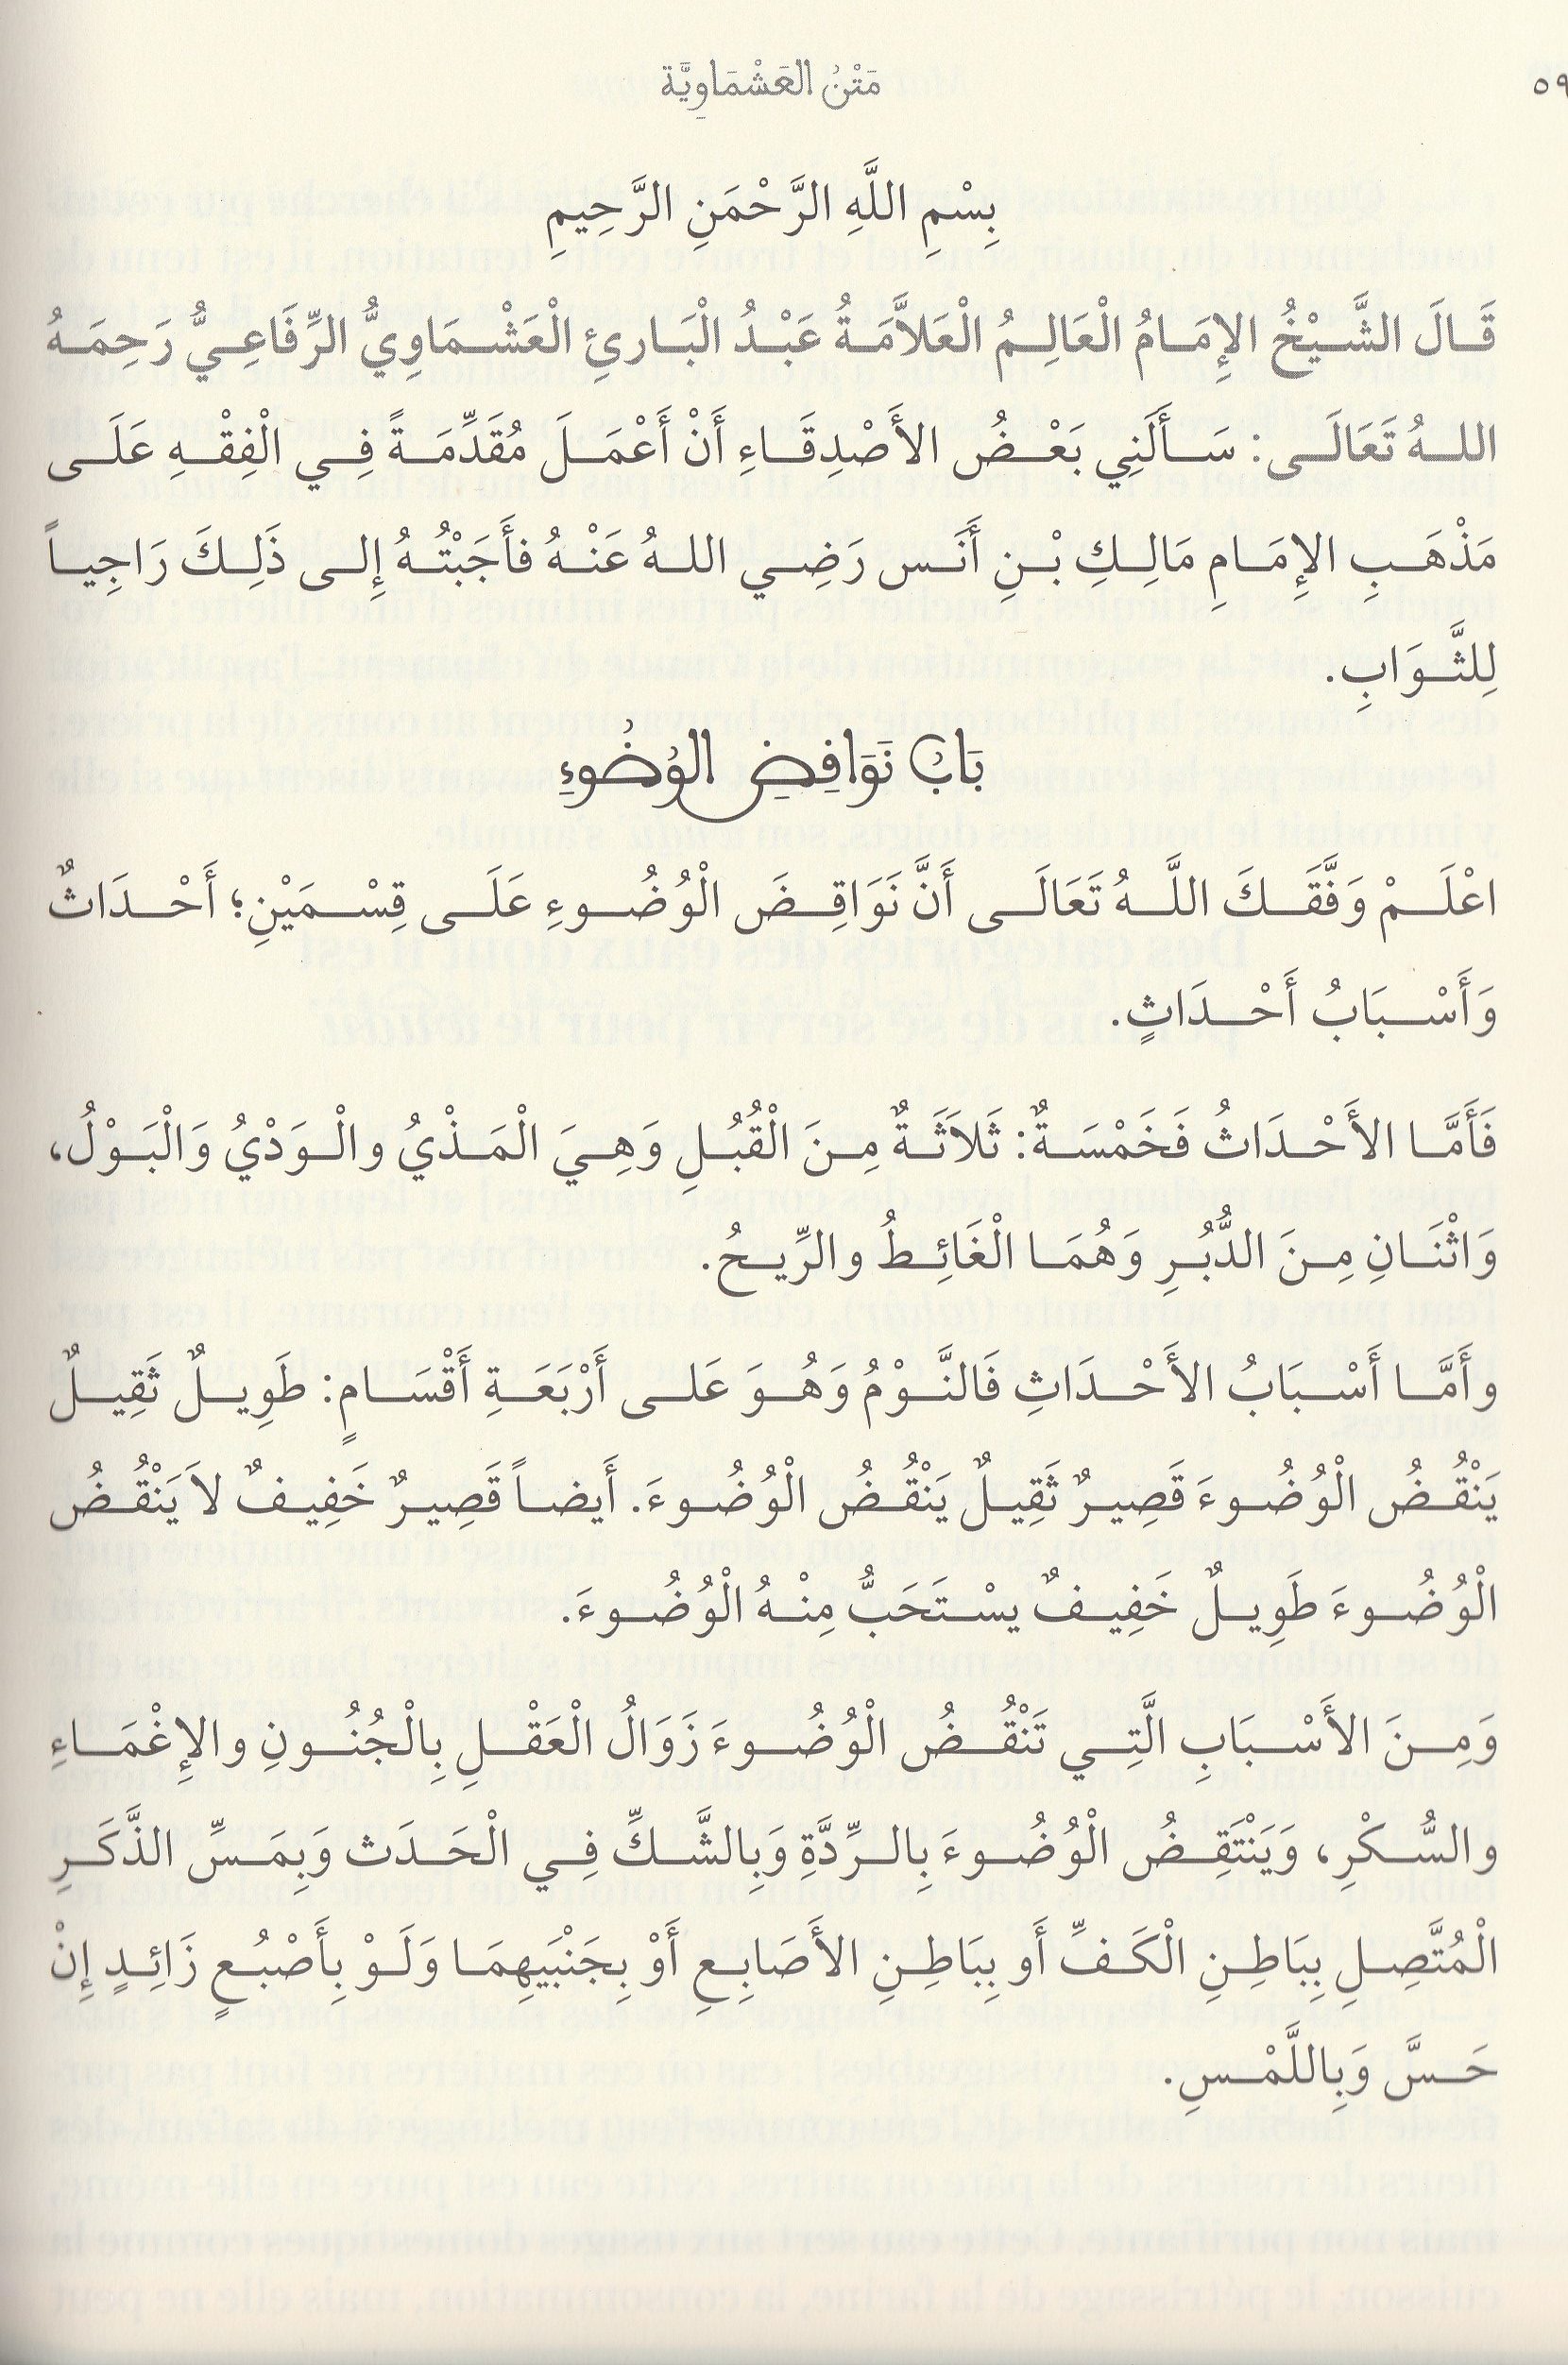 مَتْنُ العَشْمَاوِيَّة
٥٩
بِسْمِ اللَّهِ الرَّحْمَنِ الرَّحِيمِ
قَالَ الشَّيْخُ الإِمَامُ الْعَالِمُ الْعَلاَّمَةُ عَبْدُ الْبَارِئِ الْعَشْمَاوِيُّ الرِّفَاعِيُّ رَحِمَهُ
اللهُ تَعَالَى: سَأَلَنِي بَعْضُ الأَصْدِقَاءِ أَنْ أَعْمَلَ مُقَدِّمَةً فِي الْفِقْهِ عَلَى
مَذْهَبِ الإِمَامِ مَالِكِ بْنِ أَنَس رَضِي اللهُ عَنْهُ فأَجَبْتُهُ إِلى ذَلِكَ رَاجِياً
لِلثَّوَابِ.
بَابُ نَوَافِضِ الوُضُوءِ
اعْلَمْ وَفَّقَكَ اللَّهُ تَعَالَى أَنَّ نَوَاقِضَ الْوُضُوءِ عَلَى قِسْمَيْنِ؛ أَحْدَاثٌ
وَأَسْبَابُ أَحْدَاثٍ.
فَأَمَّا الأَحْدَاثُ فَخَمْسَةٌ: ثَلاَثَةٌ مِنَ الْقُبُلِ وَهِيَ الْمَذْيُ والْوَدْيُ وَالْبَوْلُ،
وَاثْنَانِ مِنَ الدُّبُرِ وَهُمَا الْغَائِطُ والرِّيحُ.
وأَمَّا أَسْبَابُ الأَحْدَاثِ فَالنَّوْمُ وَهُوَ عَلى أَرْبَعَةِ أَقْسَامٍ: طَوِيلٌ ثَقِيلٌ
يَنْقُضُ الْوُضُوءَ قَصِيرٌ ثَقِيلٌ يَنْقُضُ الْوُضُوءَ. أَيضاً قَصِيرٌ خَفِيفٌ لاَ يَنْقُضُ
الْوُضُوءَ طَوِيلٌ خَفِيفٌ يسْتَحَبُّ مِنْهُ الْوُضُوءَ.
وَمِنَ الأَسْبَابِ الَّتِي تَنْقُضُ الْوُضُوءَ زَوَالُ الْعَقْلِ بِالْجُنُونِ والإِغْمَاءِ
والسُّكْرِ، وَيَنْتَقِضُ الْوُضُوءَ بِالرِّدَّةِ وَبِالشَّكِّ فِي الْحَدَث وَبِمَسِّ الذَّكَرِ
الْمُتَّصِلِ بِبَاطِنِ الْكَفِّ أَو بِبَاطِنِ الأَصَابِعِ أَوْ بِجَنْبَيهِمَا وَلَوْ بِأَصْبُعٍ زَائِدٍ إِنْ
حَسَّ وَبِاللَّمْسِ.